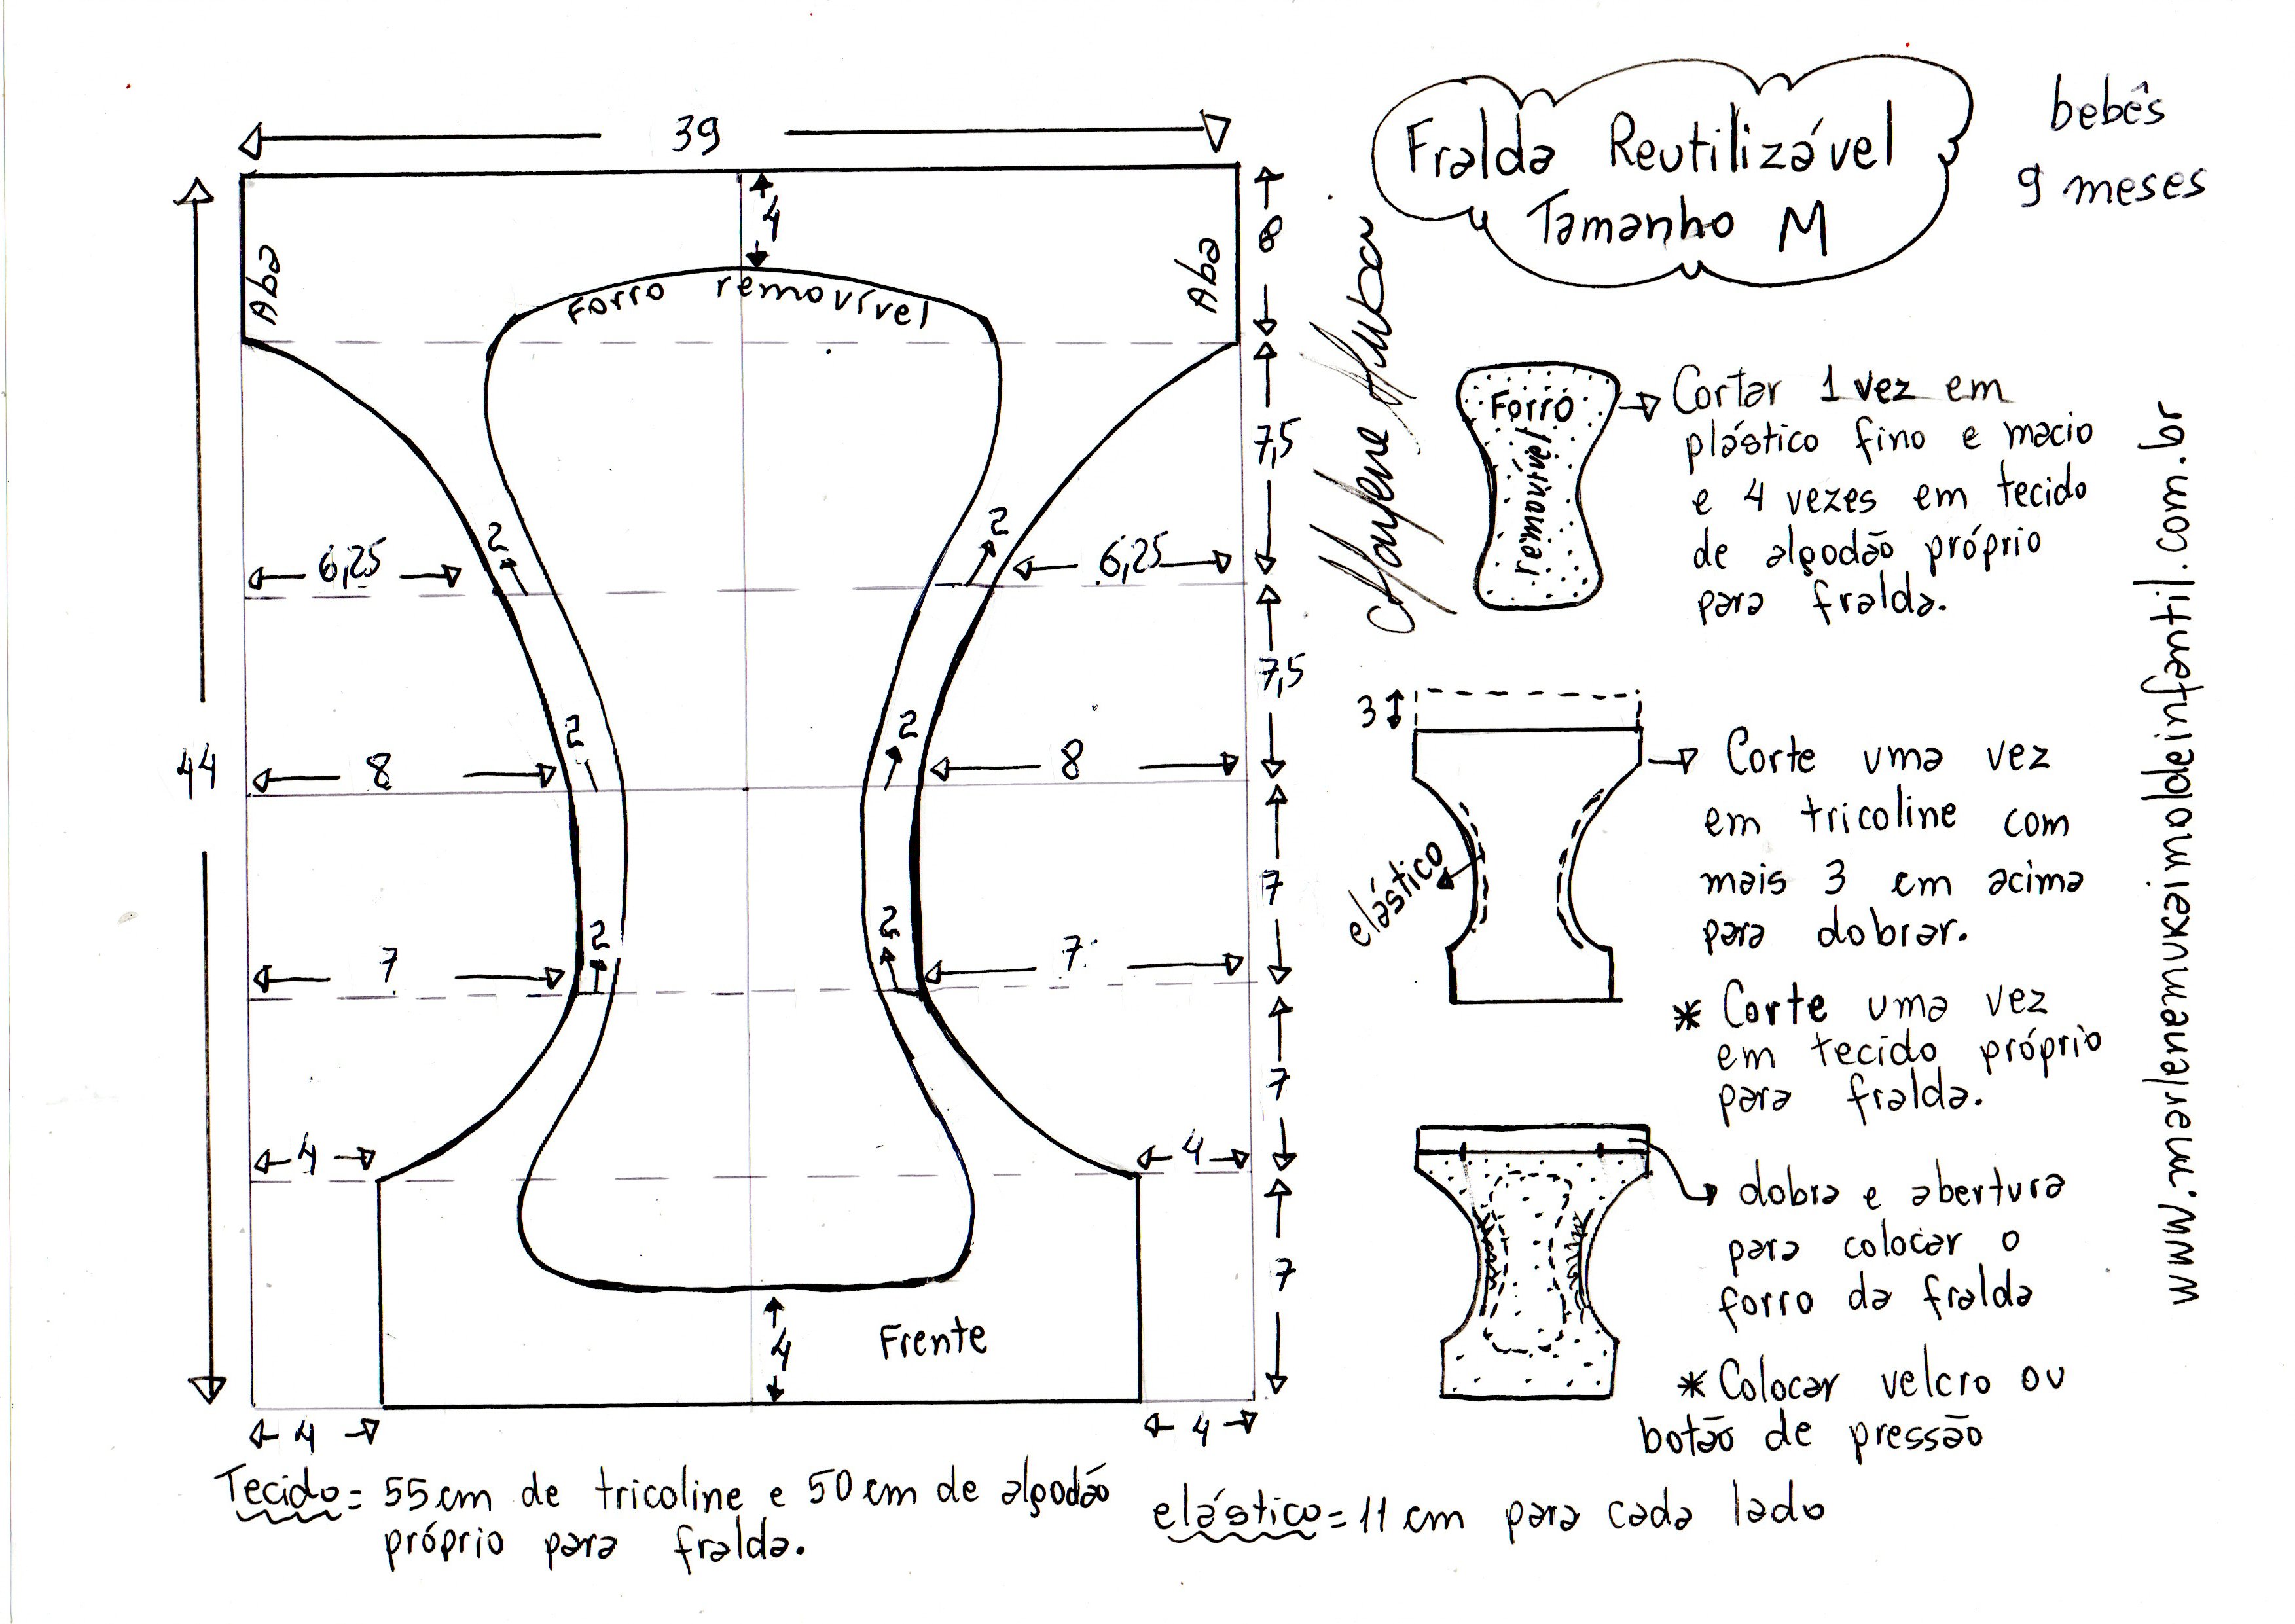 Fralda Reutilizável
Tamanho M
bebês
9 meses
39
44
4
8
Aba
Aba
Forro removível
7,5
2
2
6,25
6,25
7,5
2
2
8
8
7
2
2
7
7
7
4
4
7
4
Frente
4
4
Tecido = 55 cm de tricoline e 50 cm de algodão
próprio para fralda.
elástico = 11 cm para cada lado
Forro
removível
Cortar 1 vez em
plástico fino e macio
e 4 vezes em tecido
de algodão próprio
para fralda.
3
elástico
Corte uma vez
em tricoline com
mais 3 cm acima
para dobrar.
* Corte uma vez
em tecido próprio
para fralda.
dobra e abertura
para colocar o
forro da fralda
* Colocar velcro ou
botão de pressão
www.marlenemukaimodeinfantil.com.br